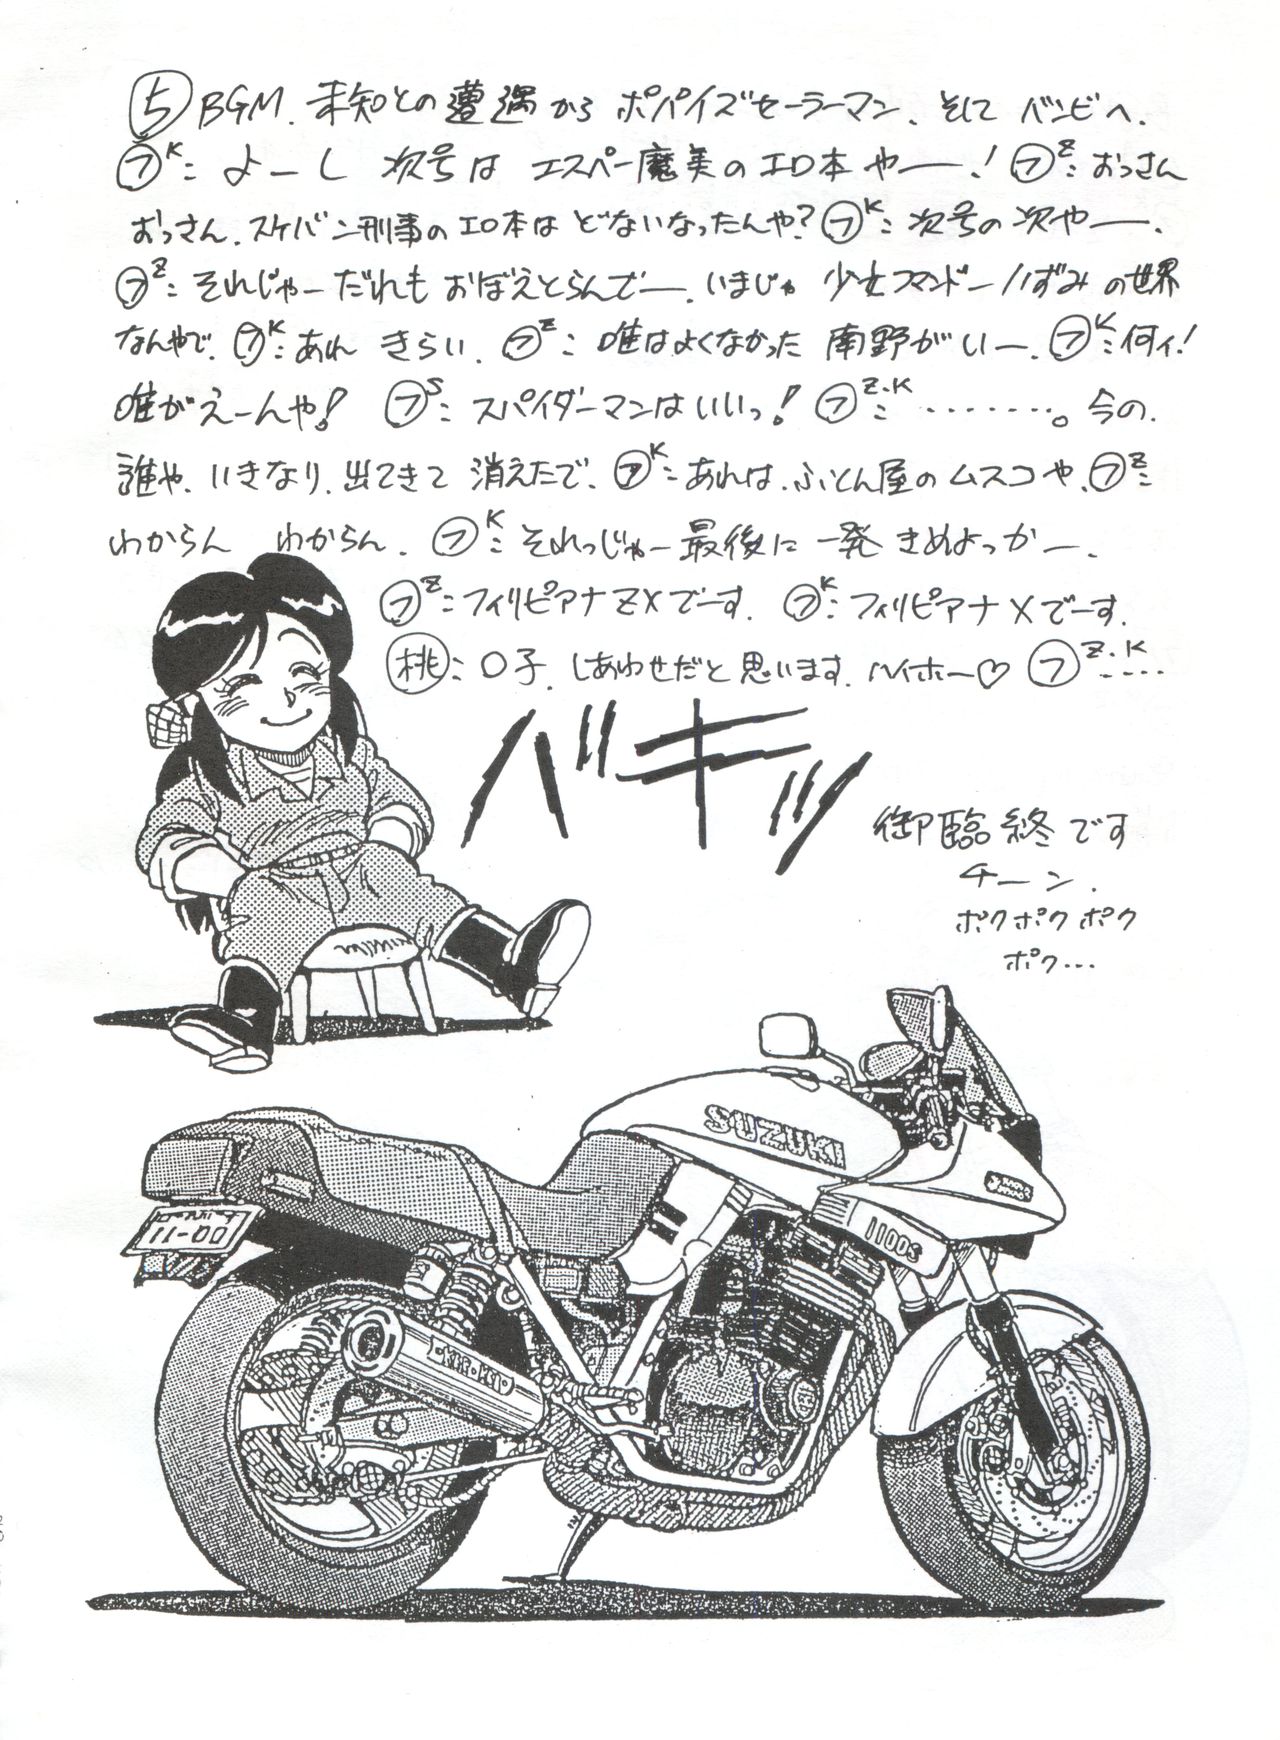 ⑤ BGM. 未知との遭遇から ポパイズセーラーマン、そして バンビへ.
㋫K: よーし 次号は エスパー魔美のエロ本やー! ㋫Z: おっさん
おっさん、スケバン刑事のエロ本は どないなったんや? ㋫K: 次号の次やー.
㋫Z: それじゃー だれも おぼえとらんでー. いまじゃ 少女コマンドーいずみ の世界
なんやで. ㋫K: あれ きらい. ㋫Z: 唯はよくなかった 南野がいー. ㋫K: 何ィ!
唯がえーんや! ㋫S: スパイダーマンはいいっ! ㋫Z・K: ‥‥‥‥。今の.
誰や、いきなり、出てきて 消えたで、㋫K: あれは、ふとん屋のムスコや、㋫Z:
わからん わからん. ㋫K: それっじゃー 最後に 一発 きめよっかー.
㋫Z: フィリピアナZXでーす. ㋫K: フィリピアナXでーす.
(桃): 〇子、しあわせだと思います. ハイホー♡ ㋫Z・K ‥‥
バキッ
御臨終です
チーン.
ポクポクポク
ポク…
SUZUKI
1100S
11-00